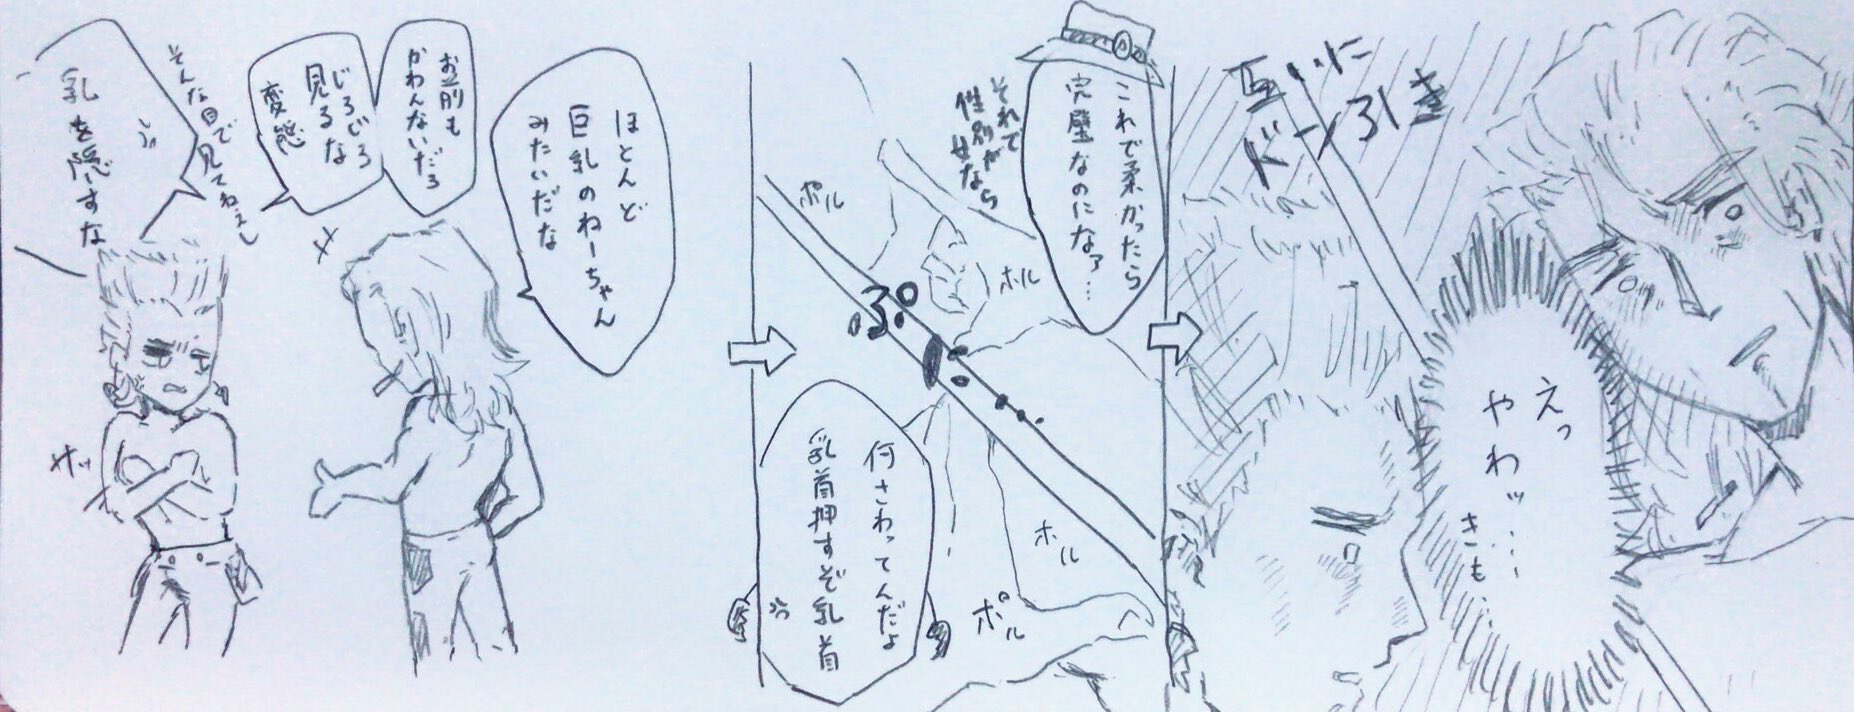 ほとんど
巨乳のねーちゃん
みたいだな
お前も
かわんないだろ
じろじろ
見るな
変態
そんな目で見てねぇし
乳を隠すな
サッ
これで柔かったら
完璧なのになァ…
それで
性別が
女なら
ポル
ホル
ホル
ポル
何さわってんだよ
乳首押すぞ乳首
互いに
ドン引き
えっ
やわッ…
きも…